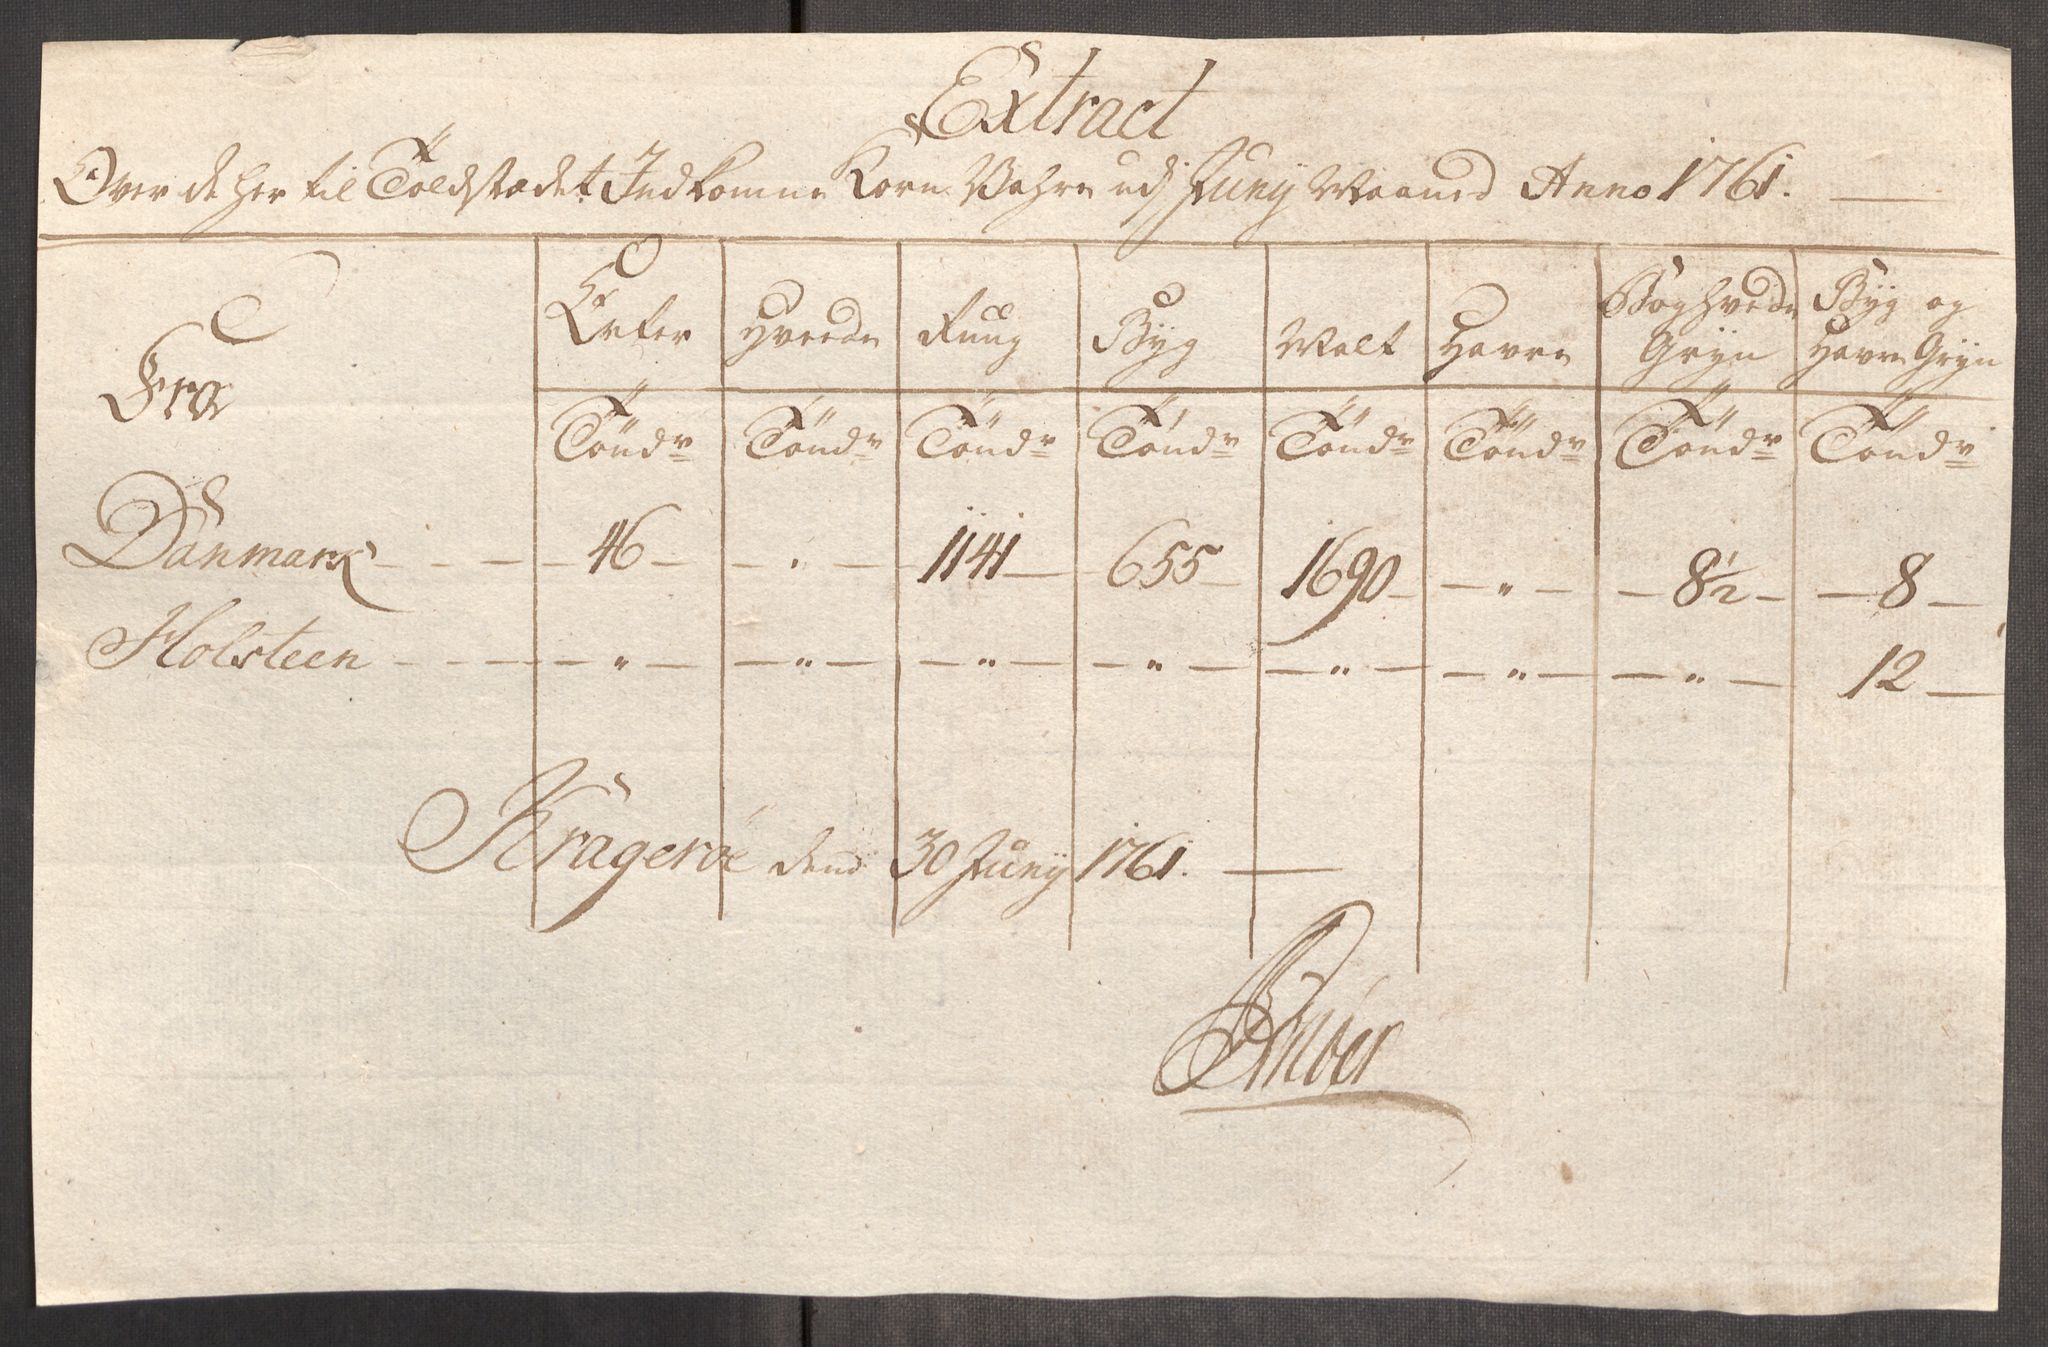 Extract
Over de her til Toldstædet Indkomne Korn Vahre udj Juny Maaned Anno 1761.
Fra Erter Hveede Rug Byg Malt Havre Boghvede Gryn Byg og Havre Gryn
Töndr Töndr Töndr Töndr Töndr Töndr Töndr Töndr
Danmark - - - 46 - - " - 1141 - 655 - 1690 - - " - - 8½ - - 8 -
Holsteen - - - " - - " - - " - - " - - " - - " - - " - 12 -
Krageröe dend 30 Juny 1761.